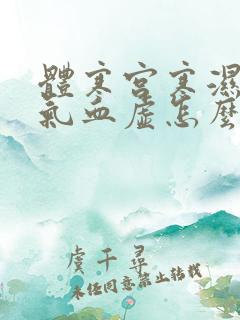 體寒宮寒濕
氣血虛怎麼
虞千尋
未經同意禁止轉載